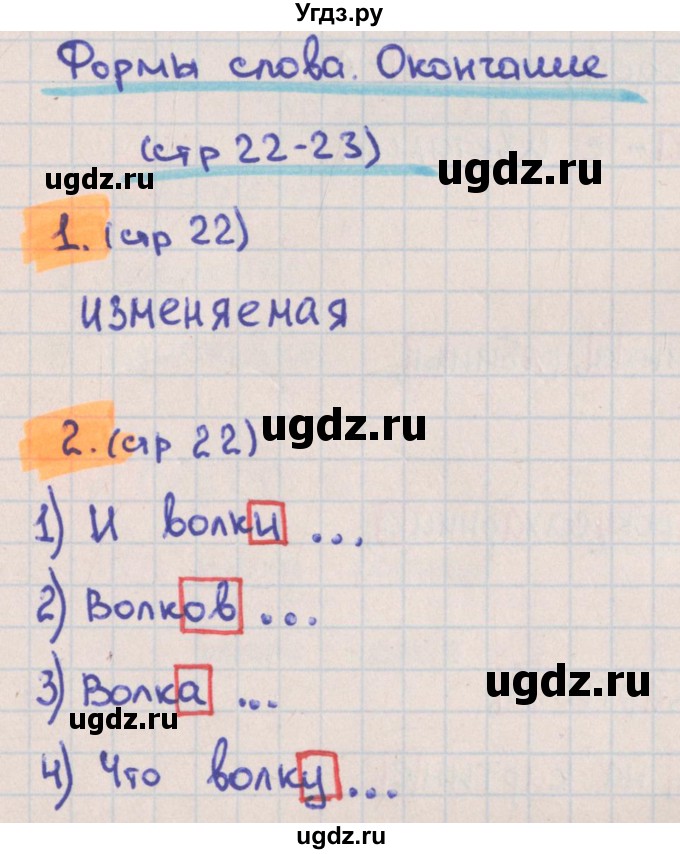 Угдз.ру
Формы слова. Окончание
(стр 22-23)
ugdz.ru
ugdz.ru
1. (стр 22)
изменяемая
ugdz.ru
2. (стр 22)
1) И волки ...
2) Волков ...
ugdz.ru
3) Волка ...
ugdz.ru
4) Что волку ...
ugdz.ru